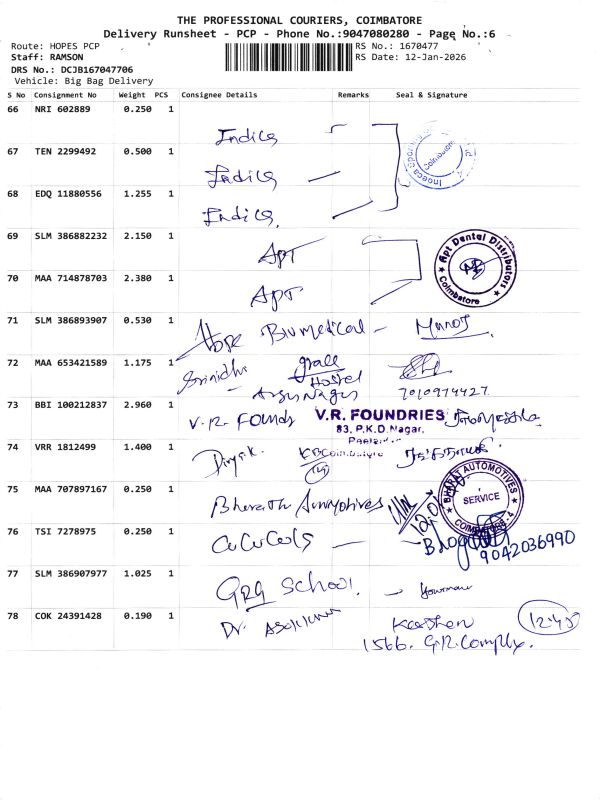 THE PROFESSIONAL COURIERS, COIMBATORE
Delivery Runsheet - PCP - Phone No.:9047080280 - Page No.:6
Route: HOPES PCP
RS No.: 1670477
Staff: RAMSON
RS Date: 12-Jan-2026
DRS No.: DCJB167047706
Vehicle: Big Bag Delivery
S No Consignment No Weight PCS Consignee Details Remarks Seal & Signature
66 NRI 602889 0.250 1
Indica
67 TEN 2299492 0.500 1
Indica
Coimbatore
68 EDQ 11880556 1.255 1
Indica
69 SLM 386882232 2.150 1
APT
Apt Dental Distributors
Coimbatore
70 MAA 714878703 2.380 1
APT
71 SLM 386893907 0.530 1
Hope Biomedical - Manoj
72 MAA 653421589 1.175 1
Srinidhi grace
Hostel
7010974427
73 BBI 100212837 2.960 1
V.R. Founds V.R. FOUNDRIES
83, P.K.D.Nagar,
74 VRR 1812499 1.400 1
75 MAA 707897167 0.250 1
Bharath
BHARAJ AUTOMOTIVES
SERVICE
COIMBATORE-4
76 TSI 7278975 0.250 1
9042036990
77 SLM 386907977 1.025 1
GRG School.
78 COK 24391428 0.190 1
Dr.
12:40
1566. G.R. Complex.